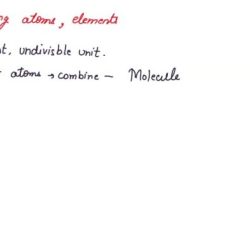 atoms, elements
undivisble unit.
atoms → combine — Molecule